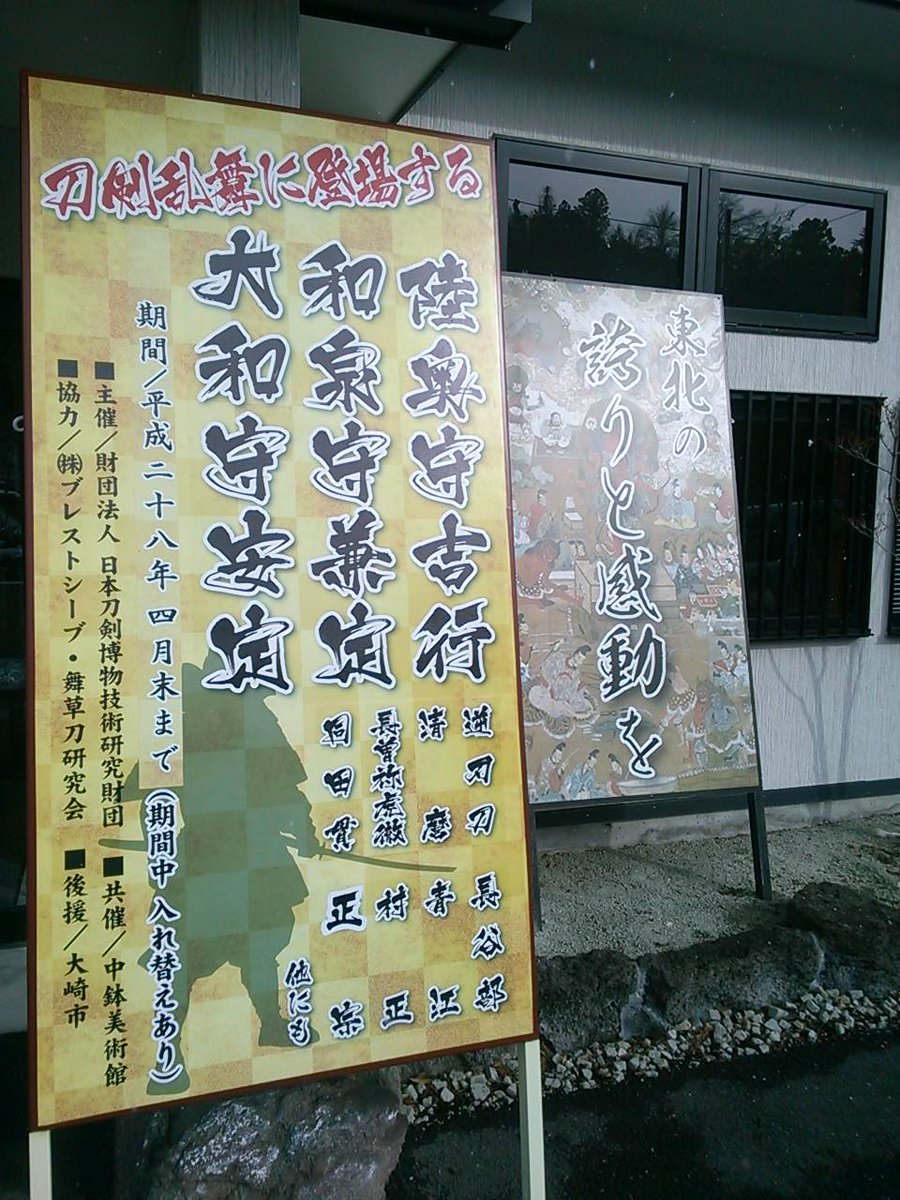 刀剣乱舞に登場する
陸奥守吉行
和泉守兼定
大和守安定
逆刀刀 長谷部
清麿 青江
長曽祢虎徹 村正
同田貫 正宗
他にも
期間／平成二十八年四月末まで（期間中入れ替えあり）
■主催／財団法人 日本刀剣博物技術研究財団 ■共催／中鉢美術館
■協力／㈱ブレストシーブ・舞草刀研究会 ■後援／大崎市
東北の
誇りと感動を